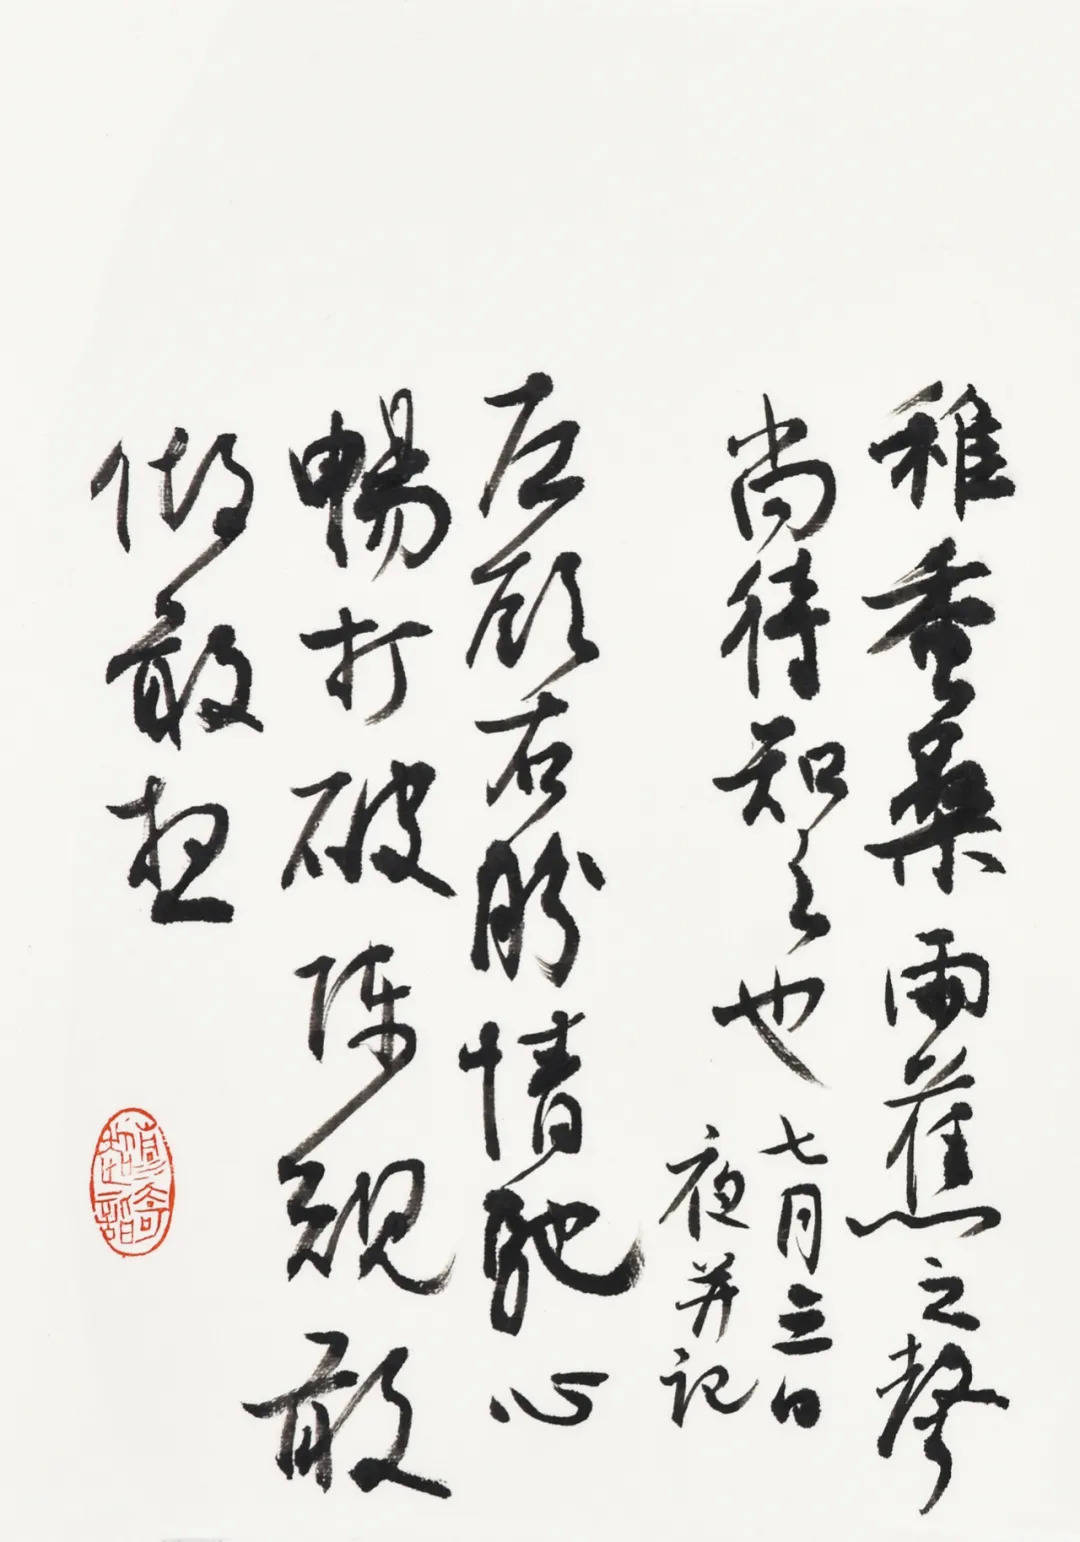 稚蚕桑雨蕉之聲
尚待知之也
七月三日
夜并记
左顾右盼情馳心
暢打破陈规敢
做敢想